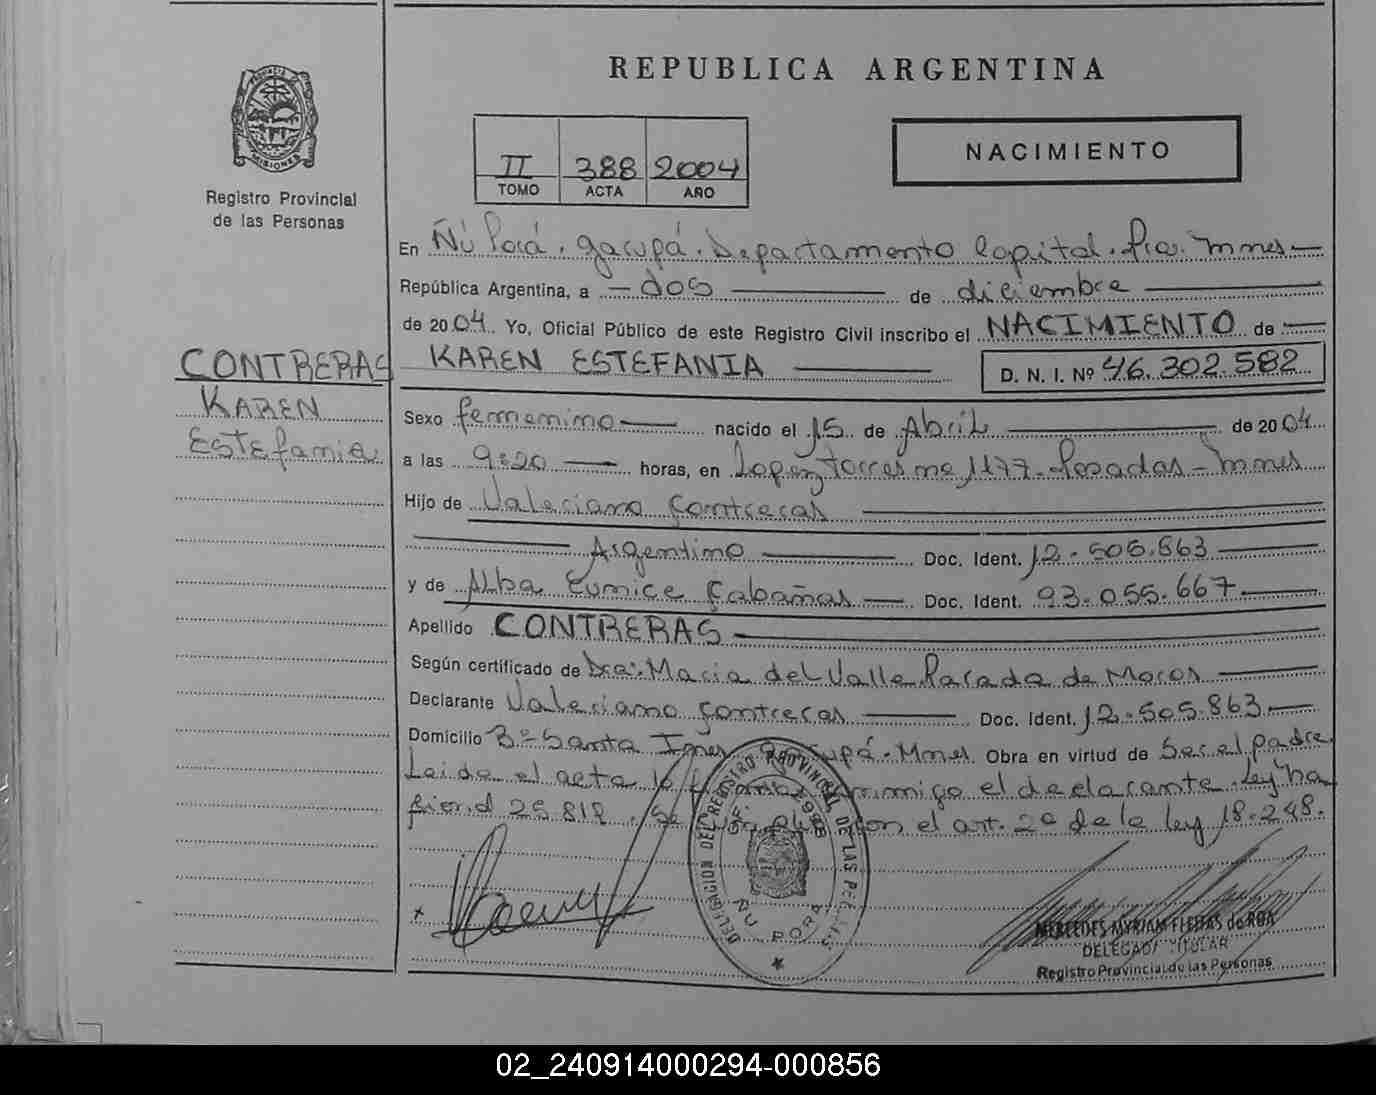 REPUBLICA ARGENTINA
NACIMIENTO
II 388 2004
TOMO ACTA AÑO
MISIONES
Registro Provincial
de las Personas
En Ñú Porá. garupá. Departamento Capital. Pia. Mnes
República Argentina, a dos de diciembre
de 2004. Yo, Oficial Público de este Registro Civil inscribo el NACIMIENTO de
KAREN ESTEFANIA D. N. I. Nº 46.302.582
CONTRERAS
KAREN
Estefania
Sexo femenino nacido el 15 de Abril de 2004
a las 9:20 horas, en Lopez Torres nº 1177. Posadas - Mnes
Hijo de Valeriano Contreras
Argentino Doc. Ident. 12.505.863
y de Alba Eunice Cabañas Doc. Ident. 93.055.667
Apellido CONTRERAS
Según certificado de Dra: Maria del Valle Parada de Moros
Declarante Valeriano Contreras Doc. Ident. 12.505.863
Domicilio Bº Santa Ines garupá - Mnes. Obra en virtud de Ser el padre
Leida el acta la conmigo el declarante. Ley Na
cional 25.819. Se con el art. 2º de la ley 18.248.
DELEGACION DEL REGISTRO PROVINCIAL DE LAS PERSONAS
ÑU PORA
MERCEDES MYRIAM FLEITAS de ROA
DELEGADA TITULAR
Registro Provincial de las Personas
02_240914000294-000856